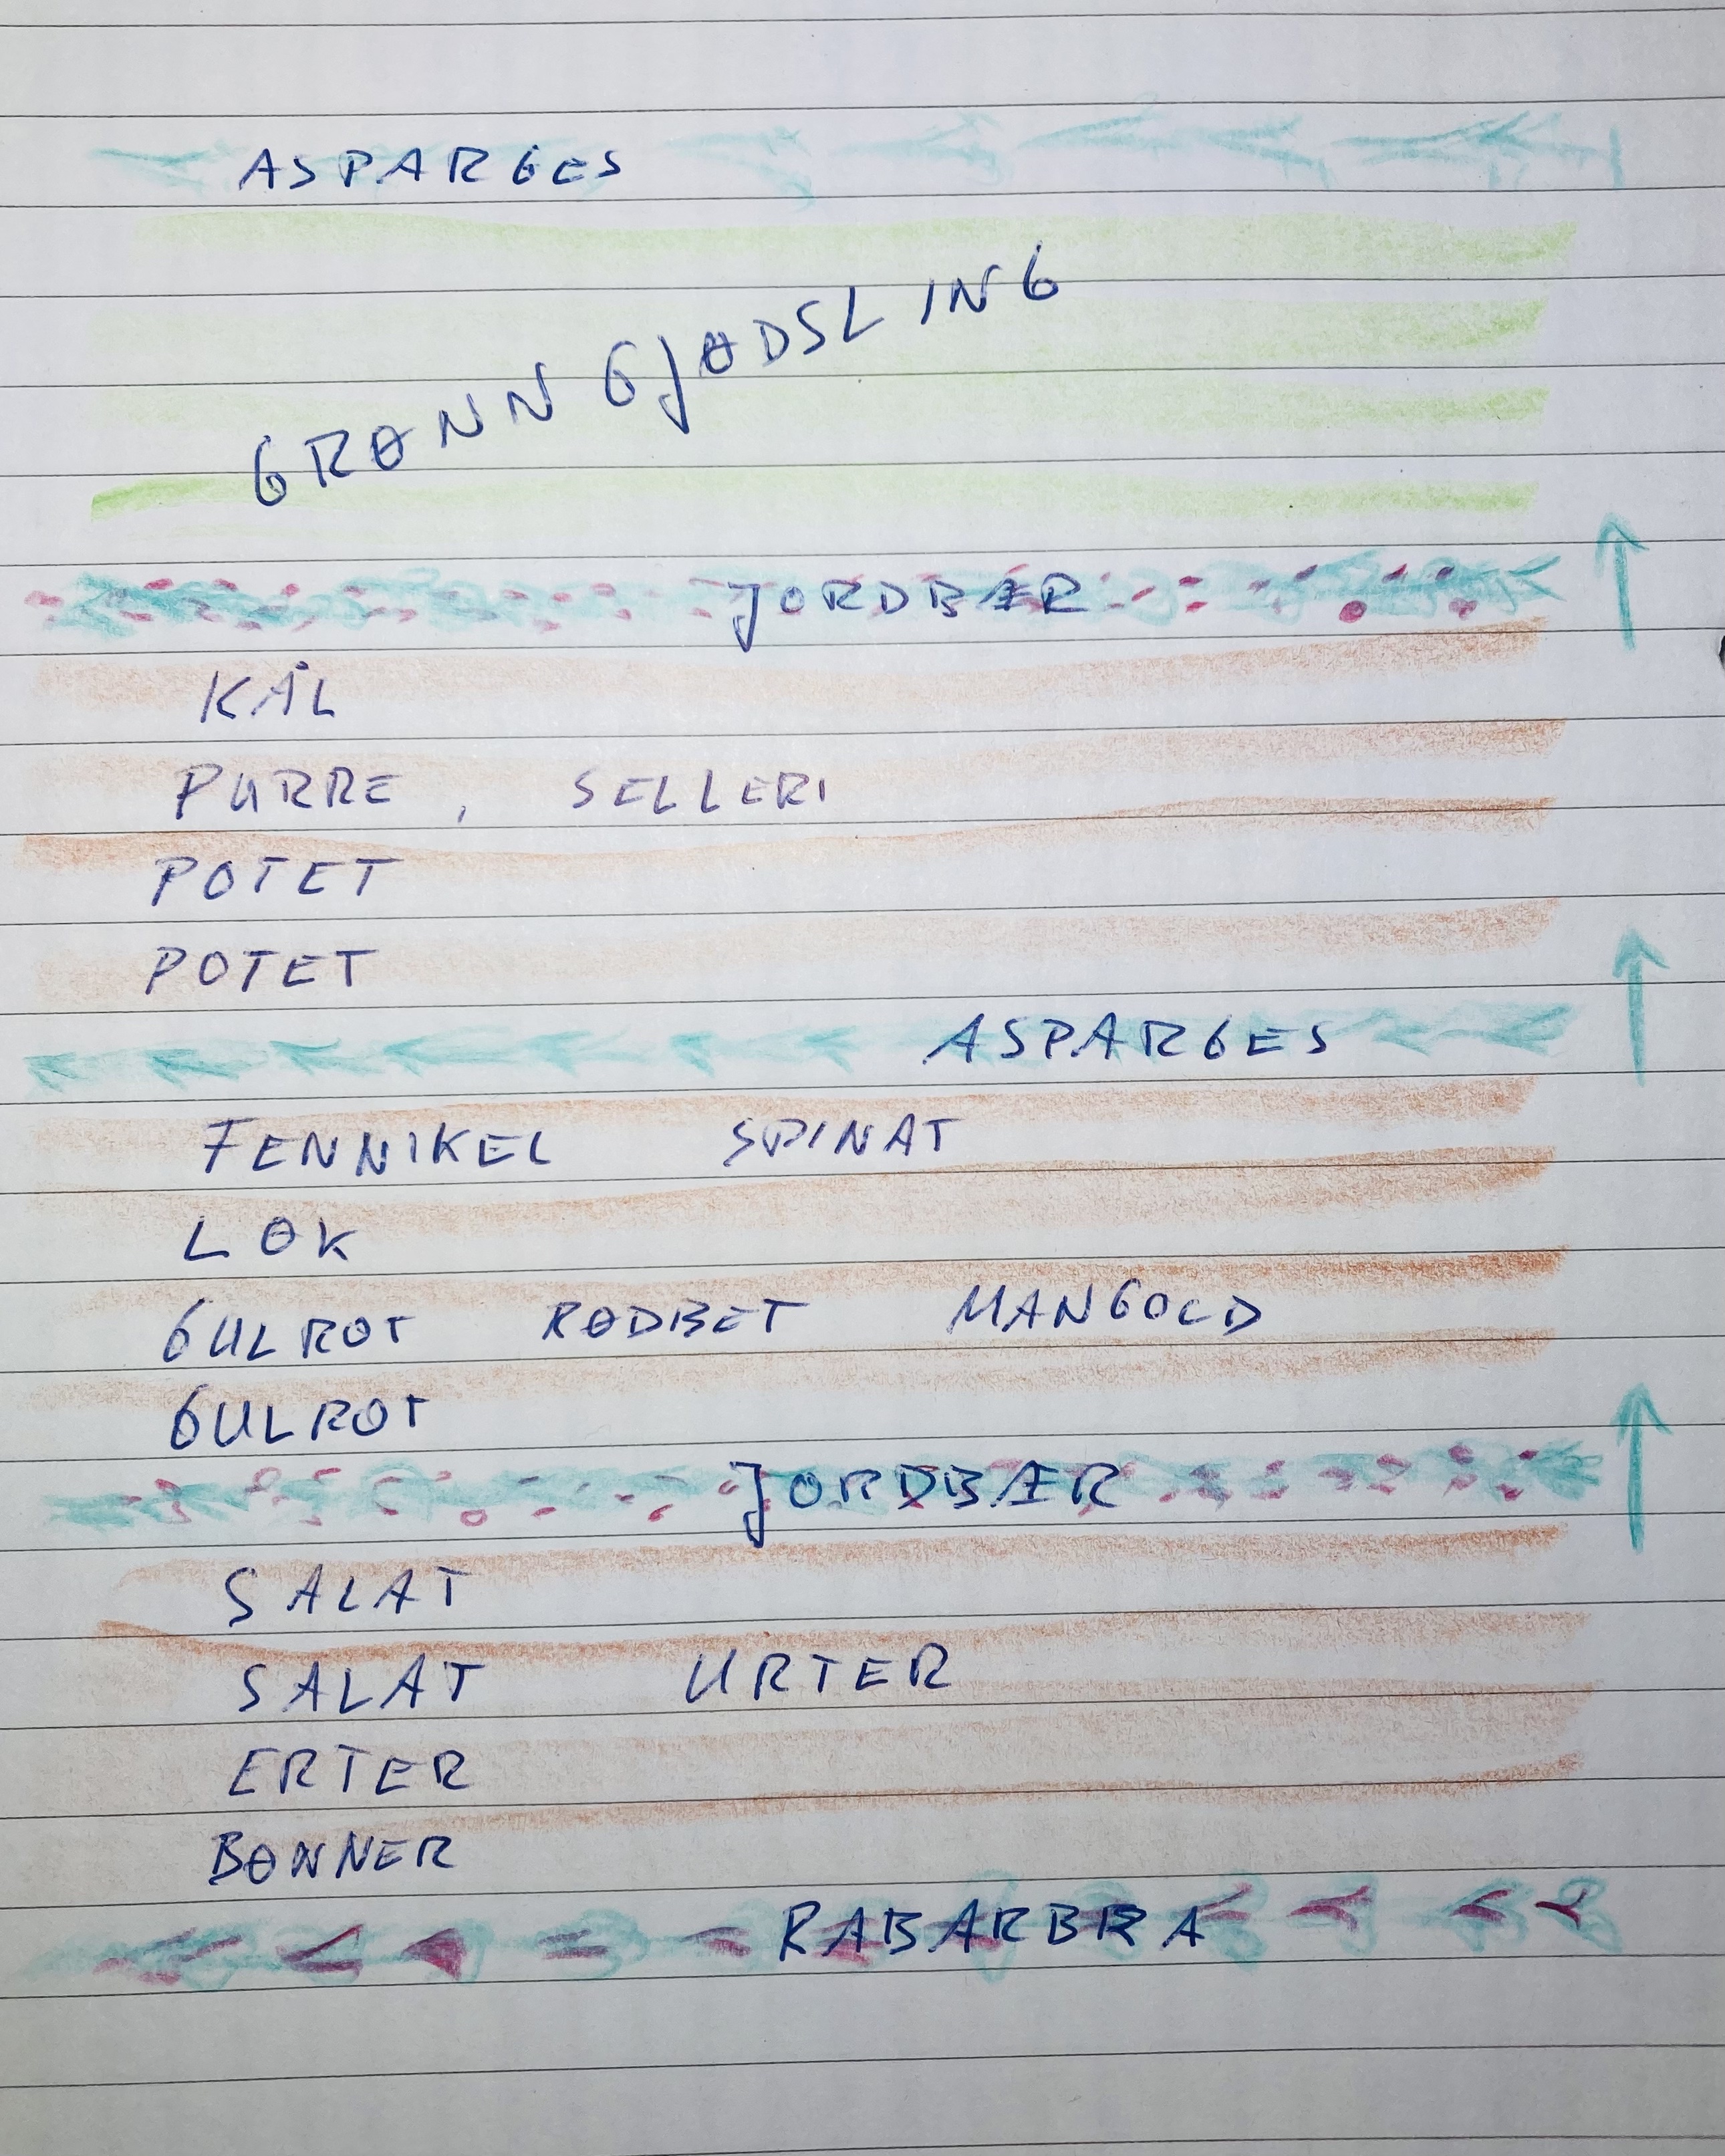 ASPARGES
GRØNNGJØDSLING
JORDBÆR
KÅL
PURRE, SELLERI
POTET
POTET
ASPARGES
FENNIKEL SPINAT
LØK
GULROT RØDBET MANGOLD
GULROT
JORDBÆR
SALAT
SALAT URTER
ERTER
BØNNER
RABARBRA